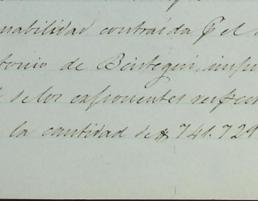 nabilidad contraida p. el
tonio de Beistegui, impo
de los esponentes respec
la cantidad de $ 741.724